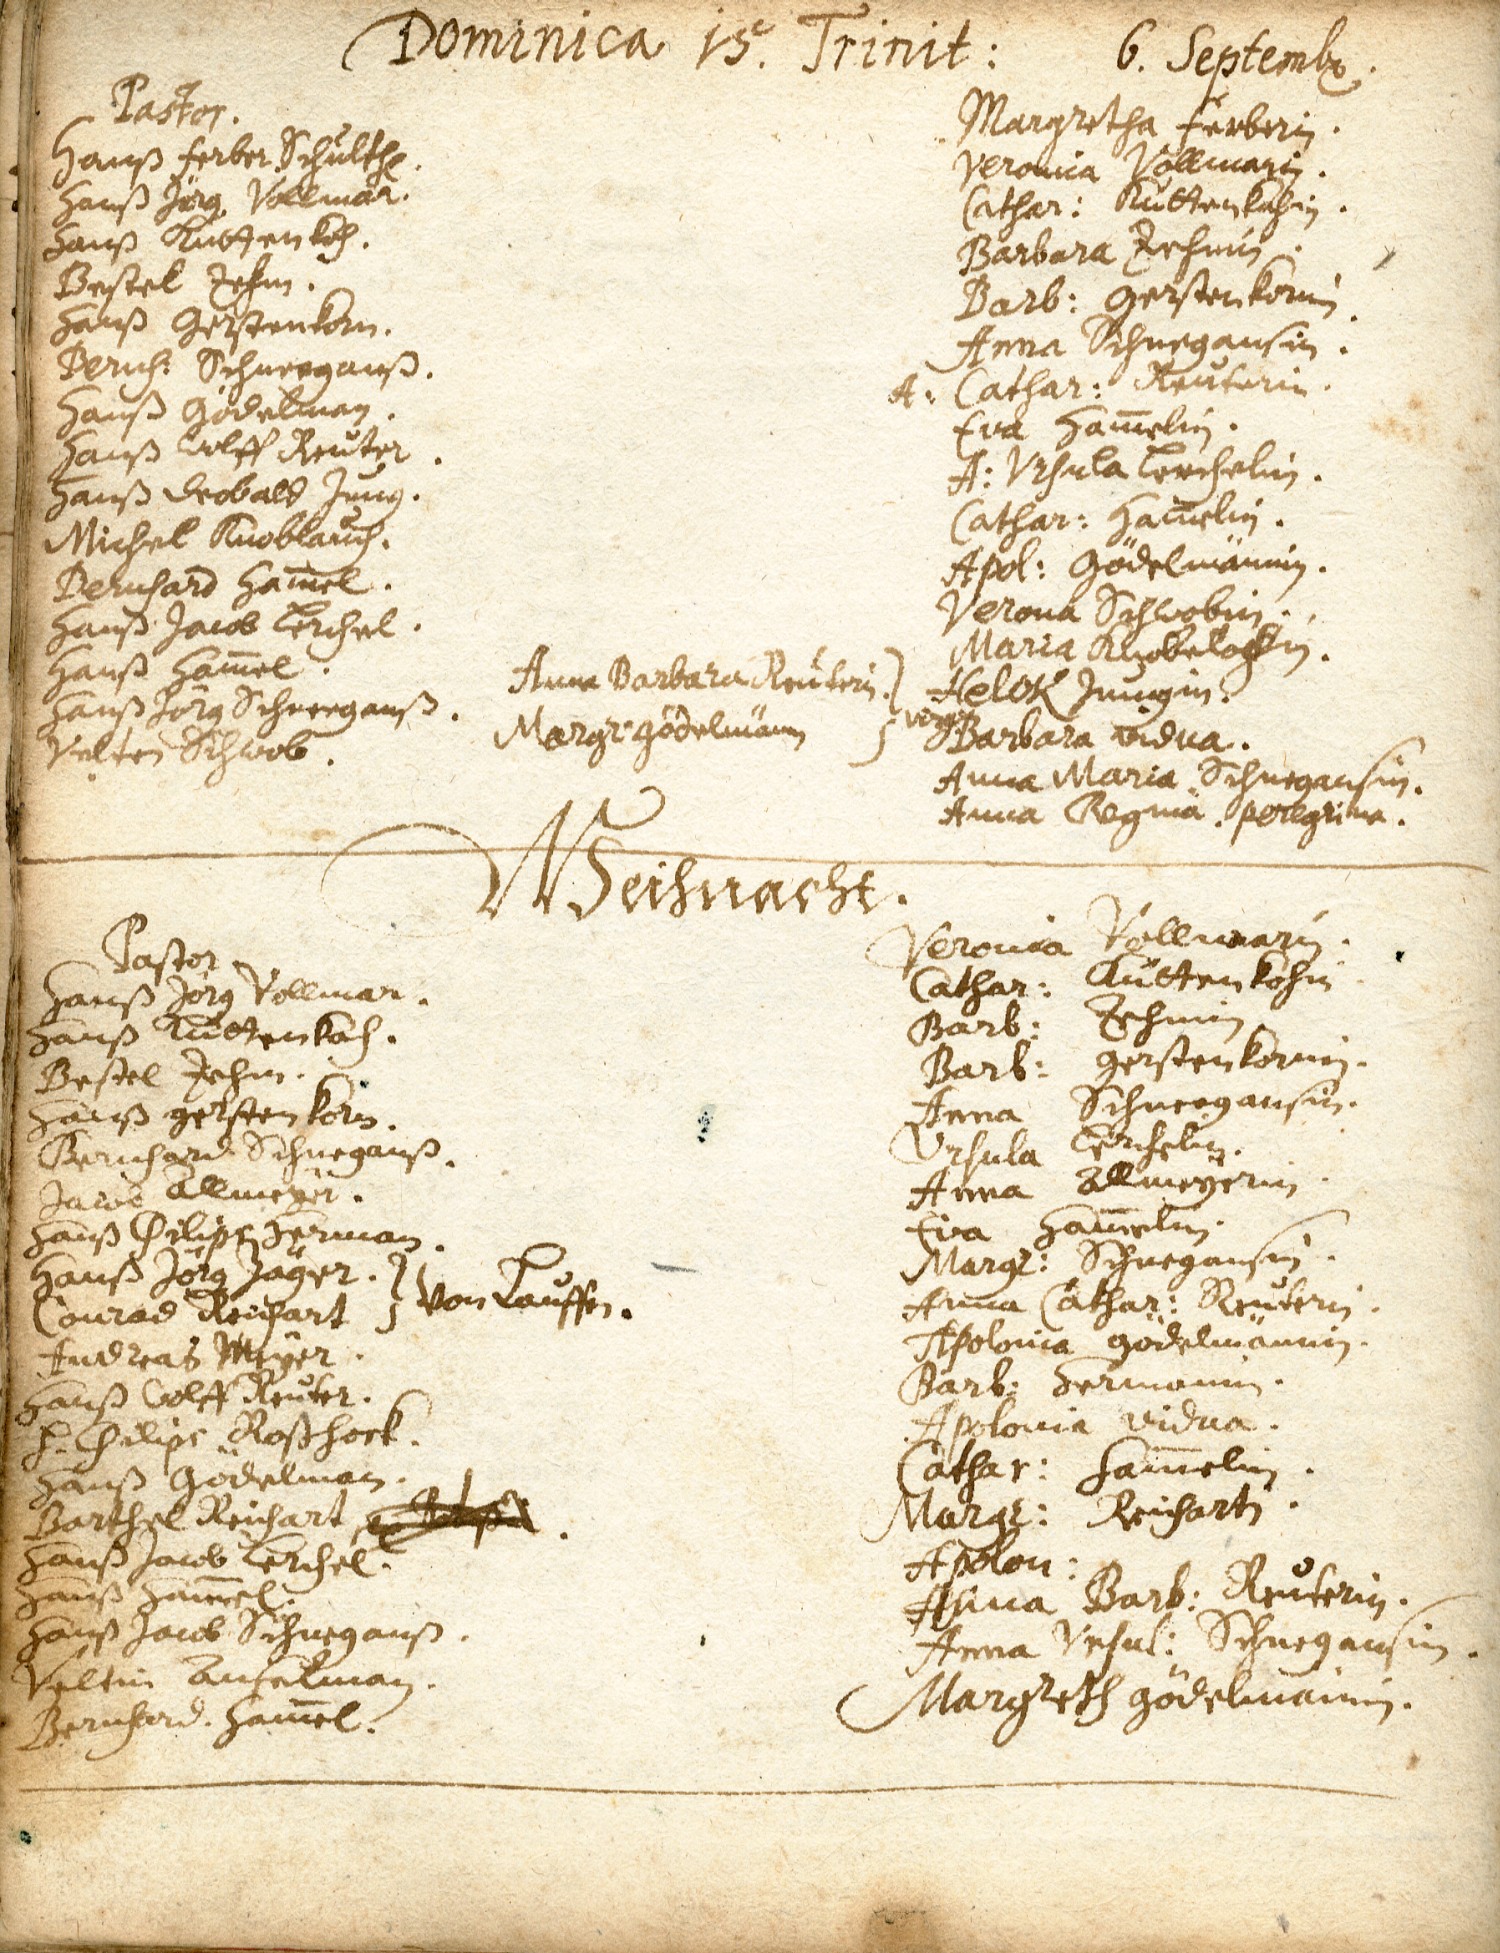 Dominica 15. Trinit: 6. Septembr.
Pastor.
Hanß Ferber Schulth.
Hanß Jörg Vollmar.
Hanß Kuttenkoch.
Bestel Zehm.
Hanß Gerstenkorn.
Bernh: Schneeganß.
Hanß Gödelman.
Hanß Wolff Reuter.
Hanß Deobald Jung.
Michel Knoblauch.
Bernhard Ham̄el.
Hanß Jacob Lerchel.
Hanß Ham̄el.
Hanß Jörg Schneeganß.
Velten Schwob.
Anna Barbara Reuterin.
Margr: Gödelmänn
virg.
Margretha Ferberin.
Veronica Vollmarin.
Cathar: Kuttenkochin.
Barbara Zehmin.
Barb: Gerstenkornin.
Anna Schnegansin.
A: Cathar: Reuterin.
Eva Ham̄elin.
A: Ursula Lerchelin.
Cathar: Ham̄elin.
Apol: Gödelmännin.
Verona Schwobin.
Maria
Jungin.
Barbara vidua.
Anna Maria Schnegansin.
Anna Regina. peregrina.
Weihnacht.
Pastor.
Hanß Jörg Vollmar.
Hanß Kuttenkoch.
Bestel Zehm.
Hanß Gerstenkorn.
Bernhard Schneganß.
Jacob Allmeyer.
Hanß Philips Herman.
Hanß Jörg Jäger.
Conrad Reichart } von Lauffen.
Andreas Meyer.
Hanß Wolff Reuter.
H. Philips Roßhock.
Hanß Gödelman.
Barthel Reichart
Hanß Jacob Lerchel.
Hanß Ham̄el.
Hanß Jacob Schneganß.
Veltin Anselman.
Bernhard Ham̄el.
Veronica Vollmarin.
Cathar: Kuttenkochin
Barb: Zehmin
Barb: Gerstenkornin.
Anna Schneegansin.
Ursula Lerchelin.
Anna Allmeyerin.
Eva Ham̄elin.
Margr: Schnegansin.
Anna Cathar: Reuterin.
Apolonia Gödelmännin.
Barb: Hermanin.
Apolonia vidua.
Cathar: Ham̄elin.
Margr: Reichartin.
Apolon:
Anna Barb: Reuterin.
Anna Ursul: Schnegansin.
Margreth Gödelmännin.